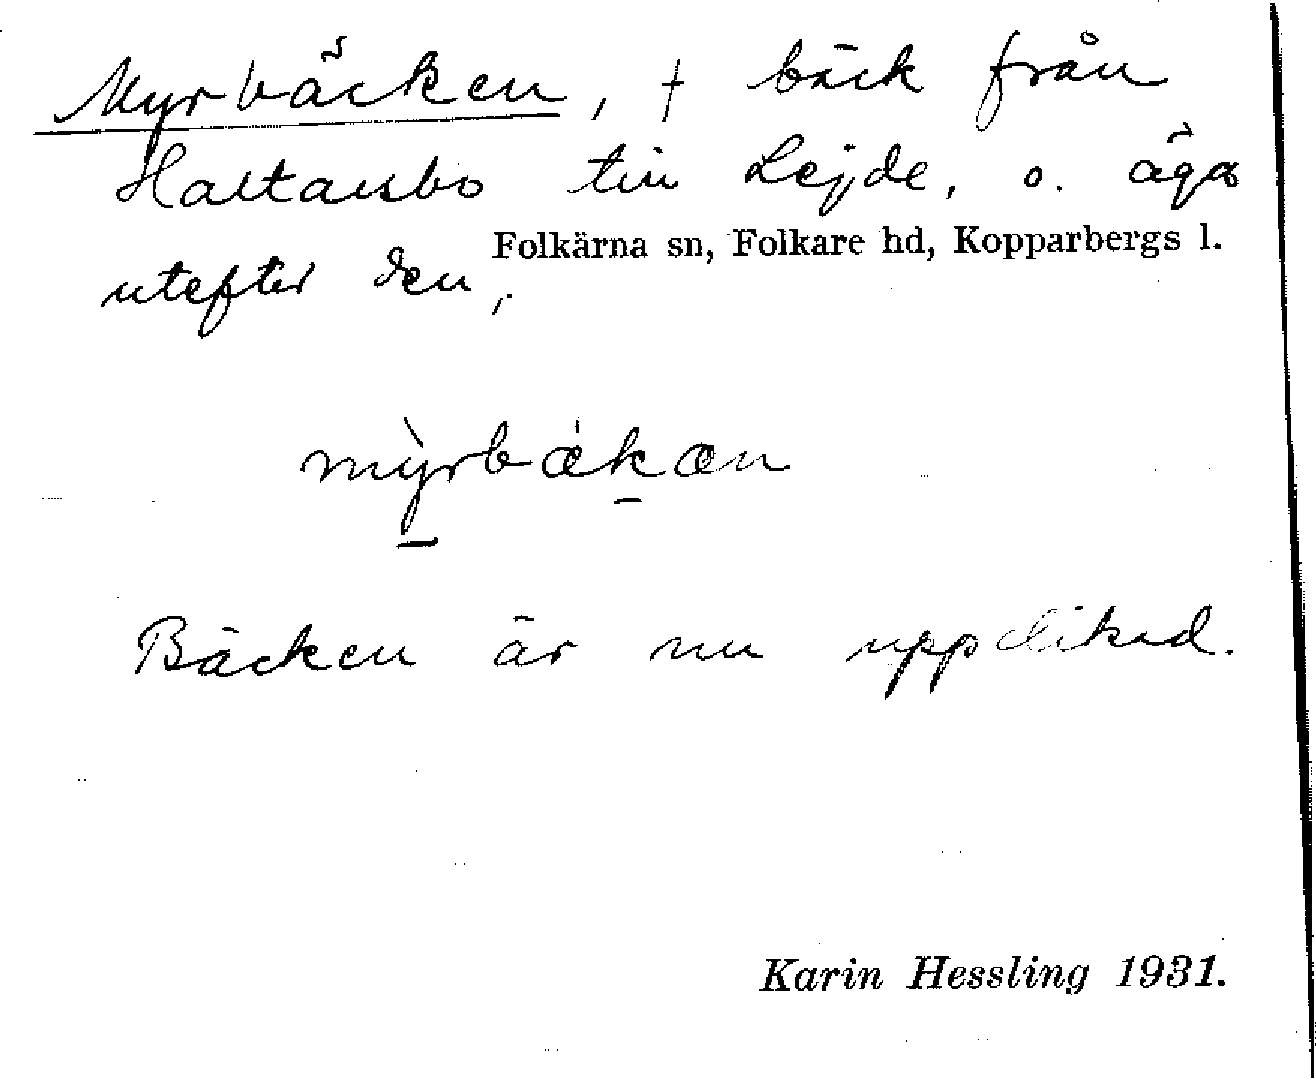 Myrbäcken, † bäck från
Haltarsbo till Lejde, o. äga
Folkärna sn, Folkare hd, Kopparbergs l.
utefter den,
mỳrbækæn
Bäcken är nu uppdikad.
Karin Hessling 1931.